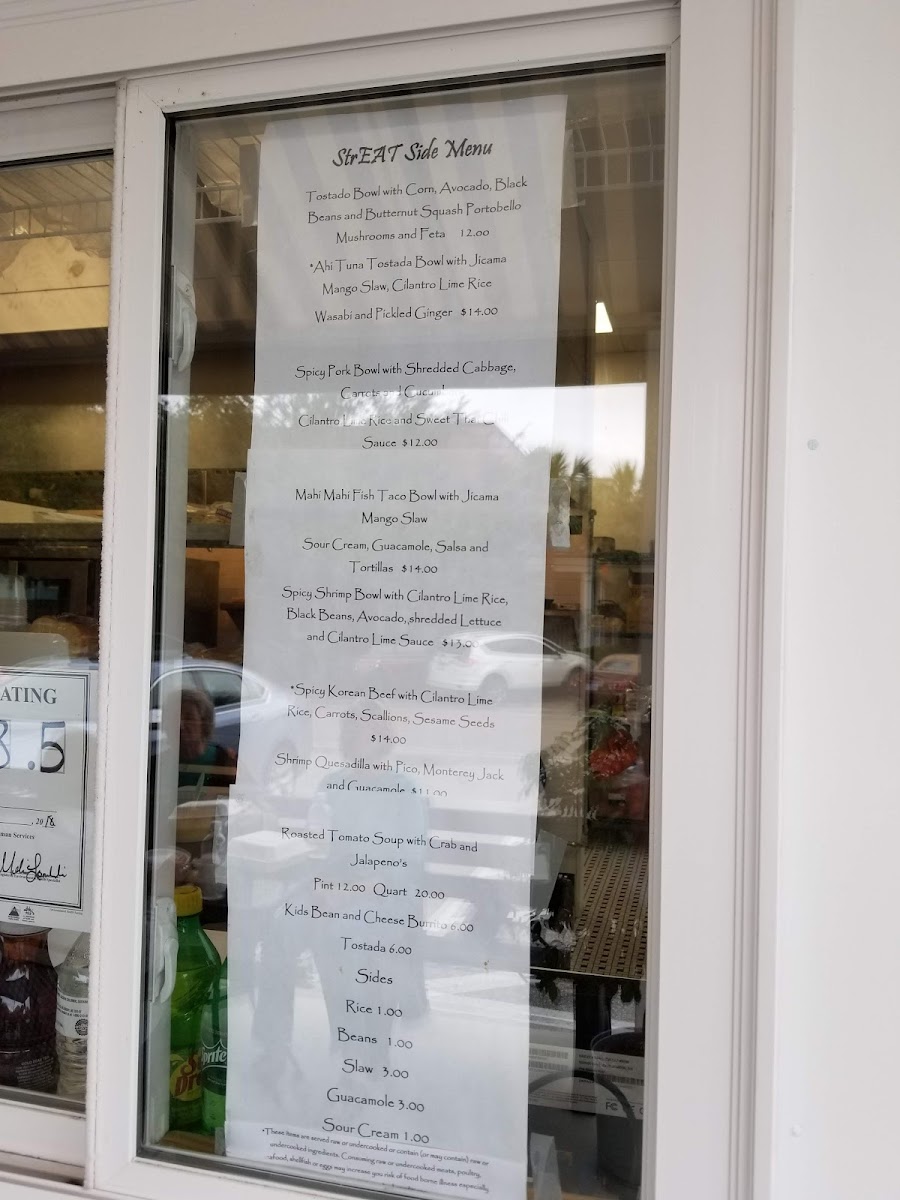 StrEAT Side Menu
Tostado Bowl with Corn, Avocado, Black
Beans and Butternut Squash Portobello
Mushrooms and Feta 12.00
*Ahi Tuna Tostada Bowl with Jicama
Mango Slaw, Cilantro Lime Rice
Wasabi and Pickled Ginger $14.00
Spicy Pork Bowl with Shredded Cabbage,
Carrots and
Cilantro Lime Rice and Sweet Thai Chili
Sauce $12.00
Mahi Mahi Fish Taco Bowl with Jicama
Mango Slaw
Sour Cream, Guacamole, Salsa and
Tortillas $14.00
Spicy Shrimp Bowl with Cilantro Lime Rice,
Black Beans, Avocado, shredded Lettuce
and Cilantro Lime Sauce $13.00
*Spicy Korean Beef with Cilantro Lime
Rice, Carrots, Scallions, Sesame Seeds
$14.00
Shrimp Quesadilla with Pico, Monterey Jack
and Guacamole $11.00
Roasted Tomato Soup with Crab and
Jalapeno's
Pint 12.00 Quart 20.00
Kids Bean and Cheese Burrito 6.00
Tostada 6.00
Sides
Rice 1.00
Beans 1.00
Slaw 3.00
Guacamole 3.00
Sour Cream 1.00
*These items are served raw or undercooked or contain (or may contain) raw or
undercooked ingredients. Consuming raw or undercooked meats, poultry,
seafood, shellfish or eggs may increase you risk of food borne illness especially
ATING
.5
, 2018
Services